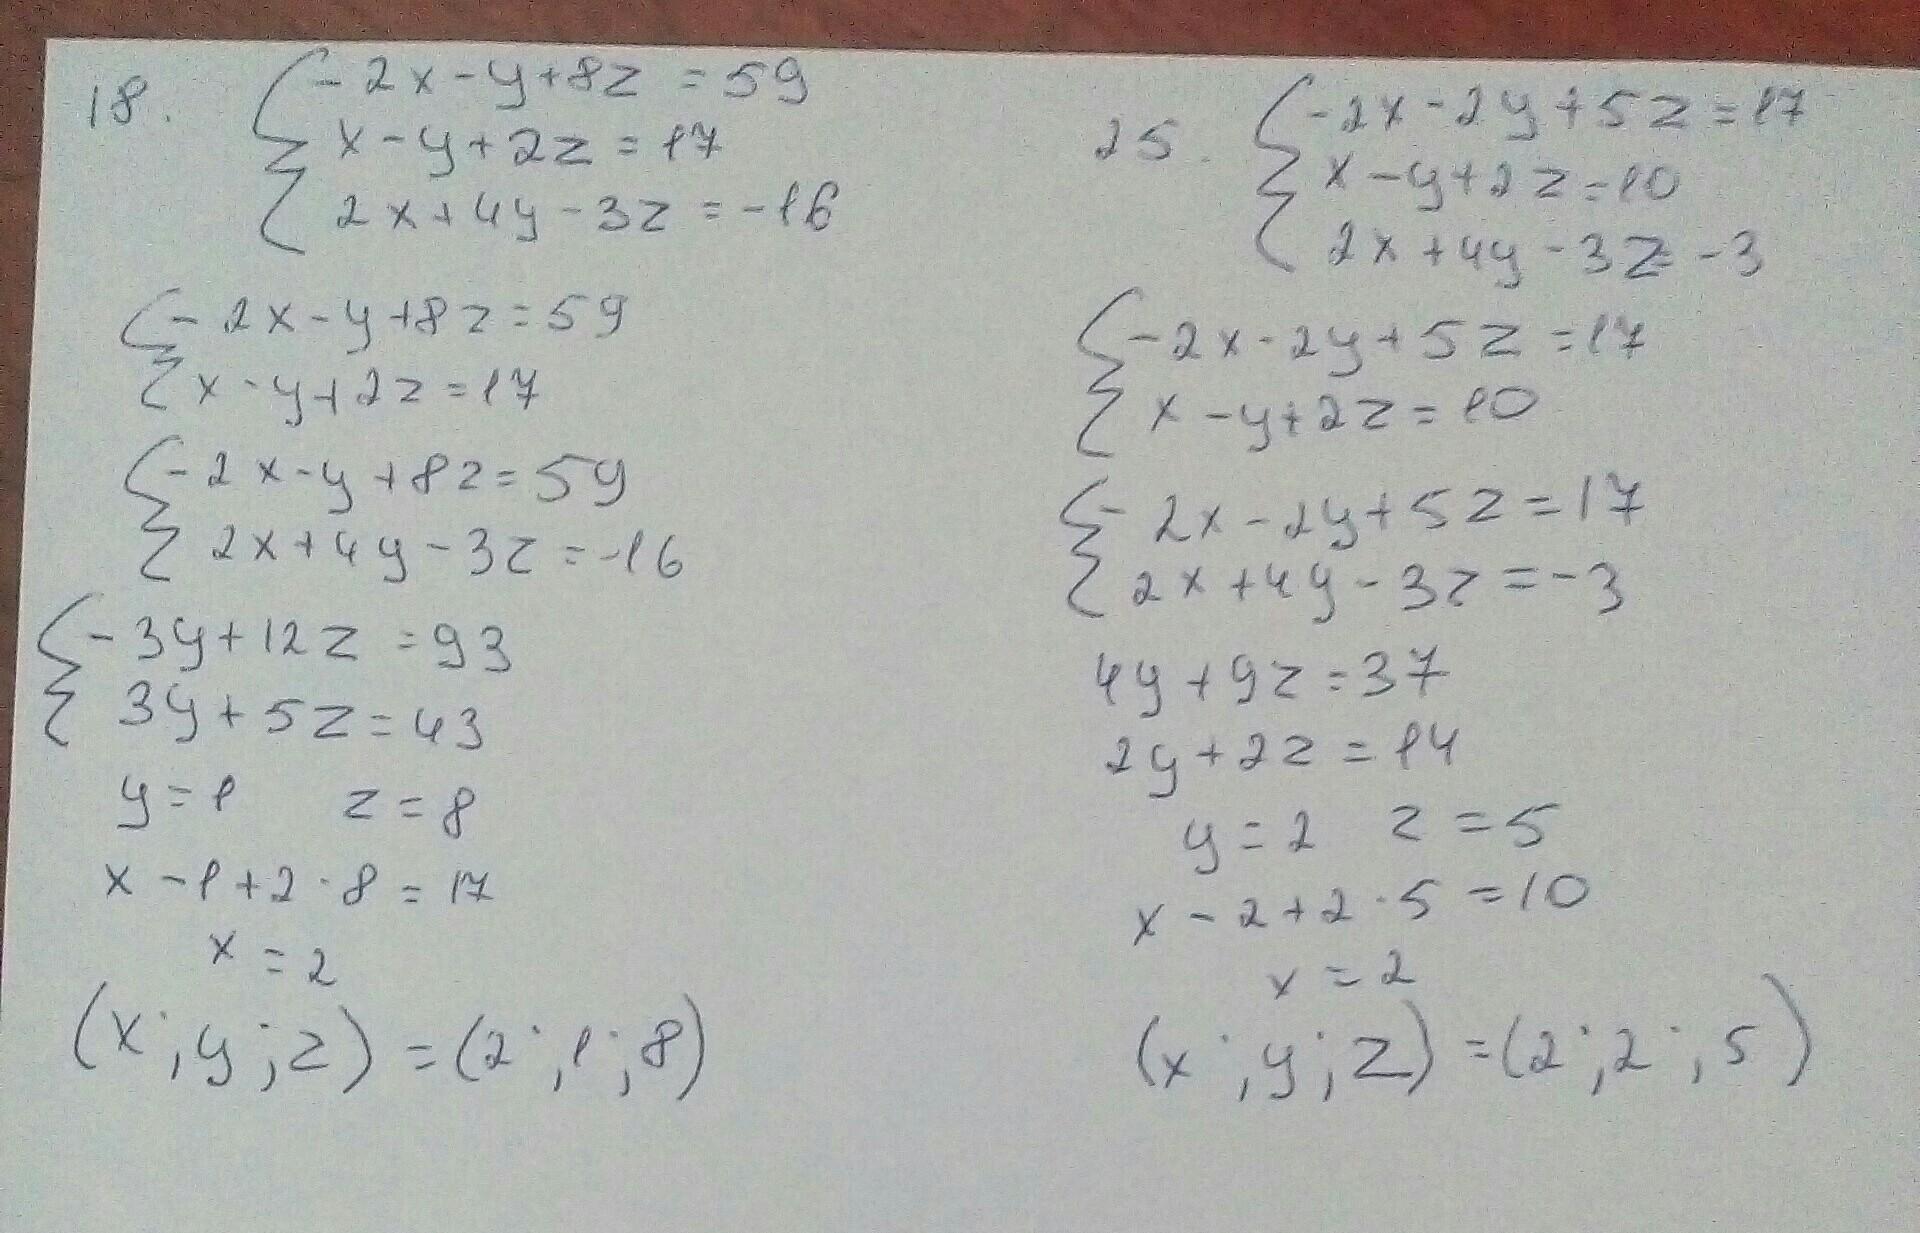 18.
-2x-y+8z=59
x-y+2z=17
2x+4y-3z=-16
-2x-y+8z=59
x-y+2z=17
-2x-y+8z=59
2x+4y-3z=-16
-3y+12z=93
3y+5z=43
y=1 z=8
x-1+2·8=17
x=2
(x;y;z)=(2;1;8)
25.
-2x-2y+5z=17
x-y+2z=10
2x+4y-3z=-3
-2x-2y+5z=17
x-y+2z=10
-2x-2y+5z=17
2x+4y-3z=-3
4y+9z=37
2y+2z=14
y=2 z=5
x-2+2·5=10
x=2
(x;y;z)=(2;2;5)